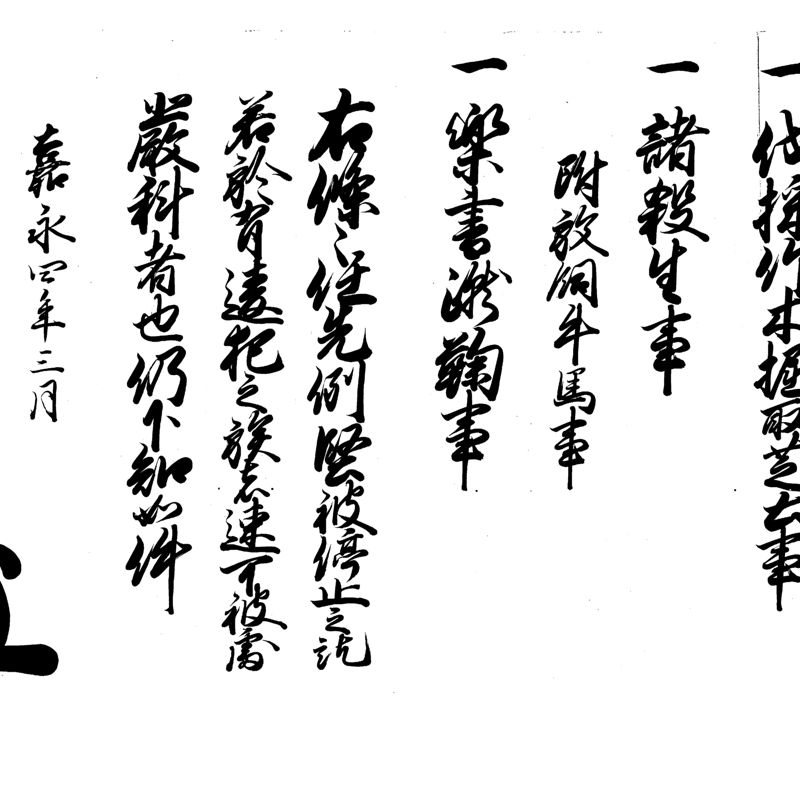 一 伐採竹木掘取芝土事
一 諸殺生事
附放飼牛馬事
一 楽書蹴鞠事
右條々任先例堅被停止之訖
若於有違犯之族者速可被處
嚴科者也仍下知如件
嘉永四年三月